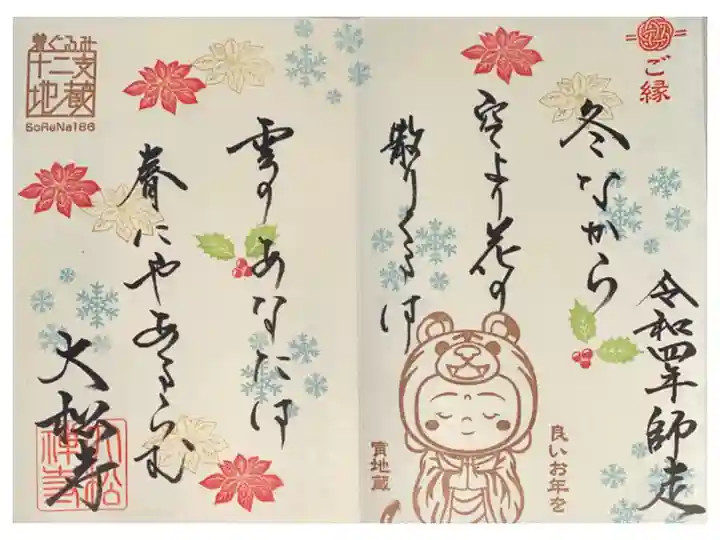 ご縁
令和四年師走
冬ながら
空より花の
散りくるは
良いお年を
寅地蔵
雲のあなたは
春にやあるらむ
大松寺
着ぐるみ
十二支
地蔵
SoReNa186